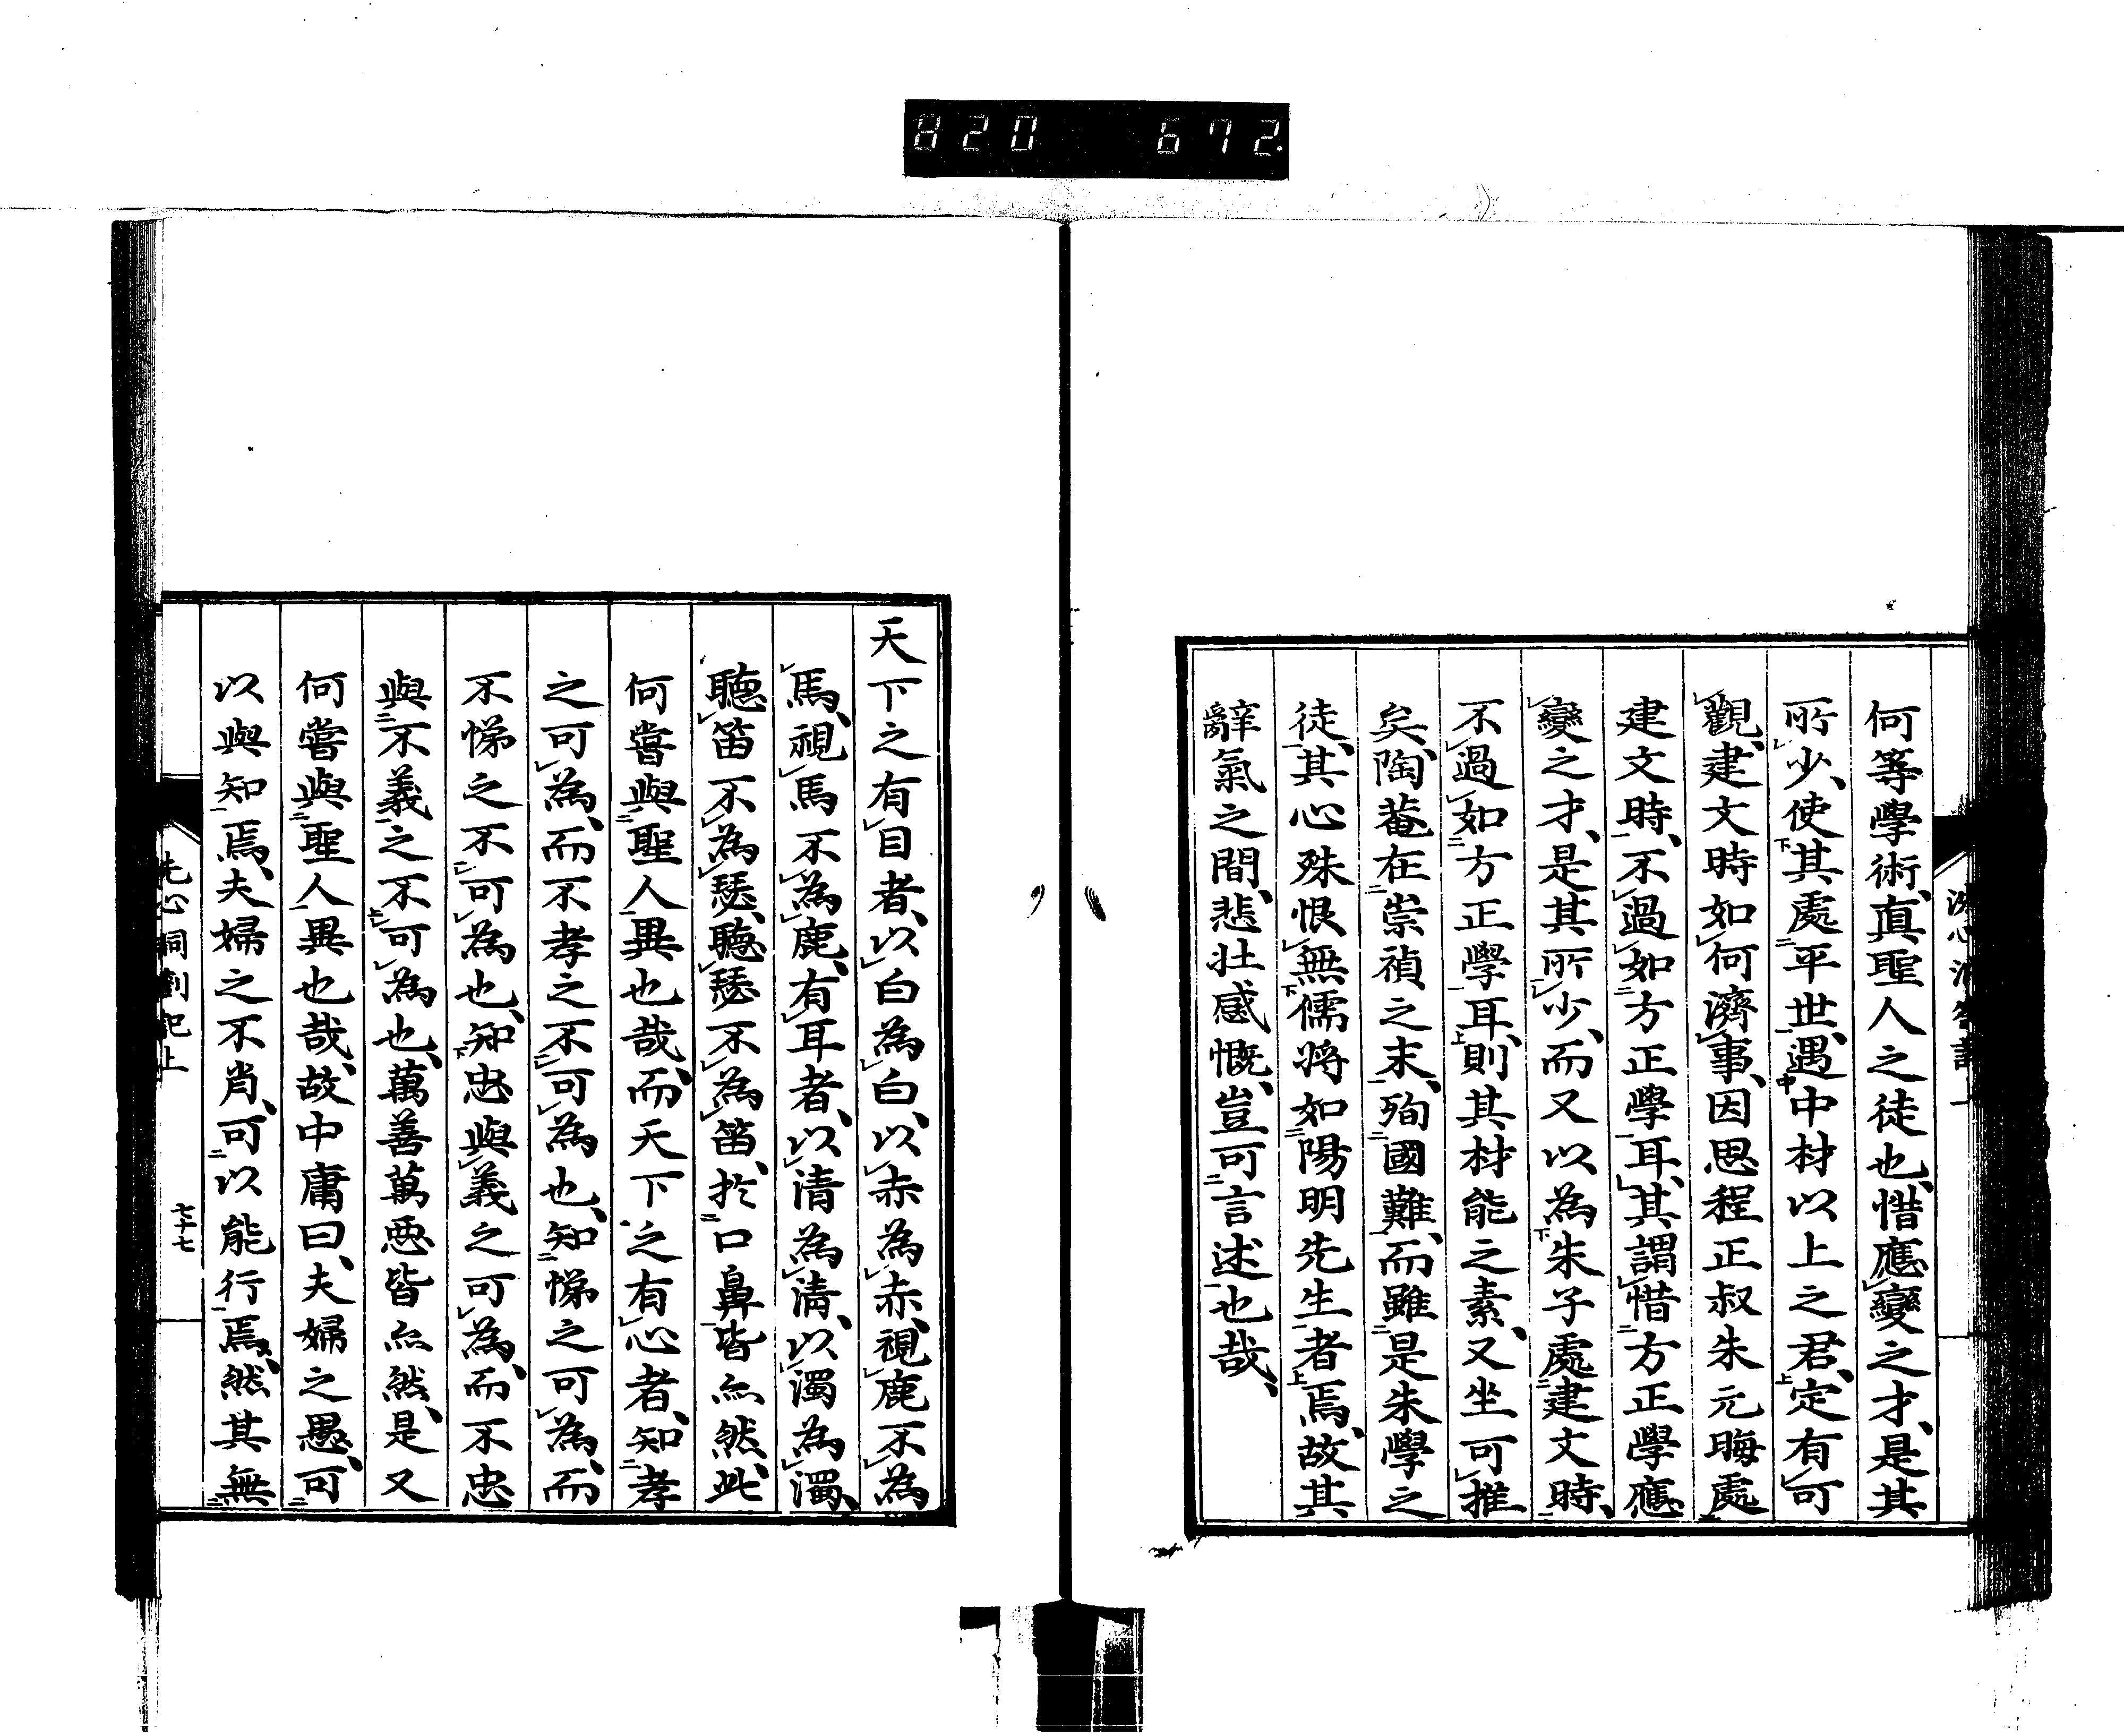 820 672
何等學術、真聖人之徒也、惜應變之才、是其
所少、使其處平世、遇中材以上之君、定有可
觀、建文時如何濟事、因思程正叔朱元晦處
建文時、不過如方正學耳、其謂惜方正學應
變之才、是其所少、而又以為朱子處建文時、
不過如方正學耳、則其材能之素、又坐可推
矣、陶菴在崇禎之末、殉國難、而雖是朱學之
徒、其心殊恨無儒將如陽明先生者焉、故其
辭氣之間、悲壯感慨、豈可言述也哉、
天下之有目者、以白為白、以赤為赤、視鹿不為
馬、視馬不為鹿、有耳者、以清為清、以濁為濁、
聽笛不為瑟、聽瑟不為笛、於口鼻皆亦然、此
何嘗與聖人異也哉、而天下之有心者、知孝
之可為、而不孝之不可為也、知悌之可為、而
不悌之不可為也、知忠與義之可為、而不忠
與不義之不可為也、萬善萬惡皆亦然、是又
何嘗與聖人異也哉、故中庸曰、夫婦之愚、可
以與知焉、夫婦之不肖、可以能行焉、然其無
洗心洞劄記上
七十七